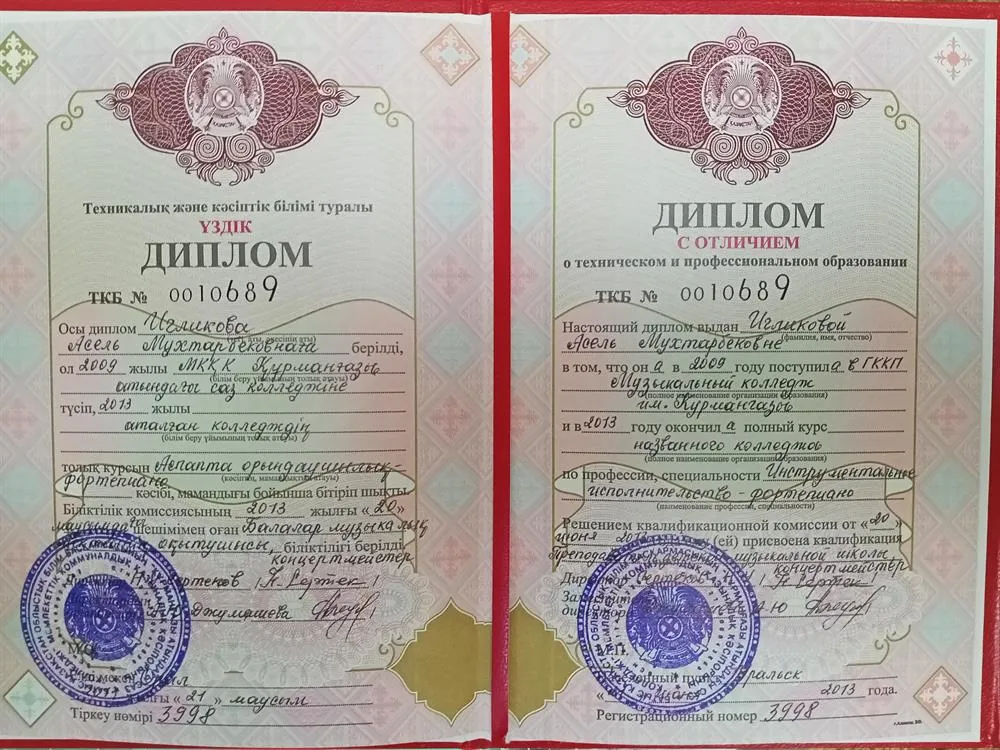 Техникалық және кәсіптік білімі туралы
ҮЗДІК
ДИПЛОМ
ТКБ № 0010689
Осы диплом Игликова
(тегі, аты, әкесінің аты)
Асель Мухтарбековнаға берілді,
ол 2009 жылы МКҚК Құрманғазы
(білім беру ұйымының толық атауы)
атындағы саз колледжіне
түсіп, 2013 жылы
аталған колледждің
(білім беру ұйымының толық атауы)
толық курсын Аспапта орындаушылық-
(кәсіптің, мамандықтың атауы)
фортепиано
кәсібі, мамандығы бойынша бітіріп шықты.
Біліктілік комиссиясының 2013 жылғы «20»
маусымдағы шешімімен оған Балалар музыкалық
оқытушысы, біліктілігі берілді.
концертмейстер
Джумашева
«21» маусым
Тіркеу нөмірі 3998
ДИПЛОМ
С ОТЛИЧИЕМ
о техническом и профессиональном образовании
ТКБ № 0010689
Настоящий диплом выдан Игликовой
(фамилия, имя, отчество)
Асель Мухтарбековне
в том, что он а в 2009 году поступил а в ГККП
Музыкальный колледж
(полное наименование организации образования)
им. Курмангазы
и в 2013 году окончил а полный курс
названного колледжа
(полное наименование организации образования)
по профессии, специальности Инструментальное
исполнительство - фортепиано
(наименование профессии, специальности)
Решением квалификационной комиссии от «20»
июня 2013 (ей) присвоена квалификация
Преподаватель музыкальной школы,
концертмейстер
М.П.
Уральск
2013 года.
Регистрационный номер 3998